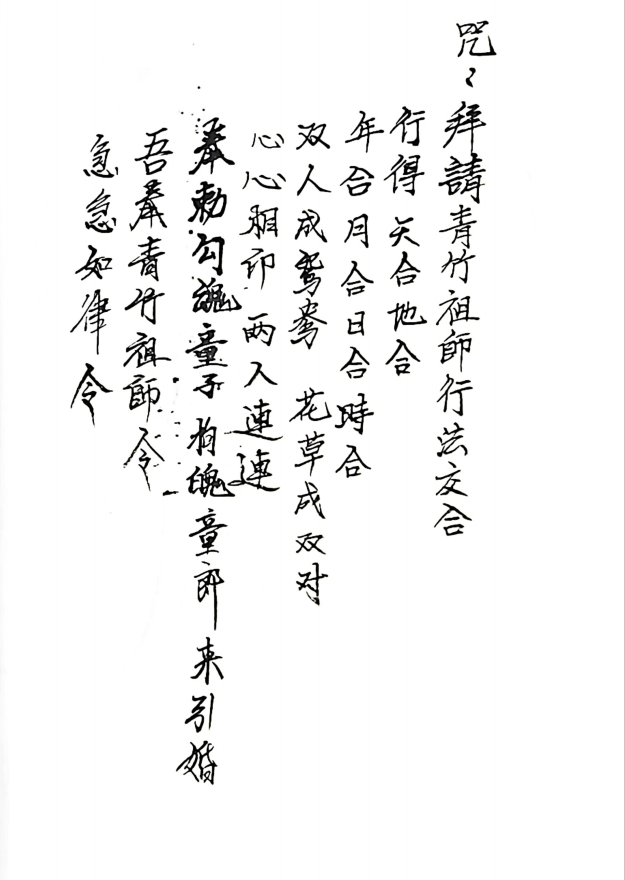 咒〻拜請青竹祖師行法交合
行得天合地合
年合月合日合時合
双人成鴛鴦 花草成双对
心心相印两人連連
奉勅勾魂童子拘魂童郎来引婚
吾奉青竹祖師令
急急如律令